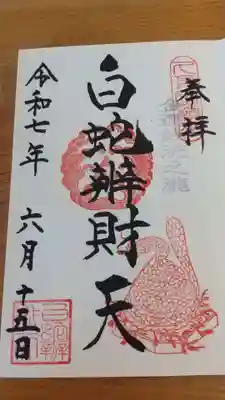 奉拝
白蛇辨財天
令和七年
六月十五日